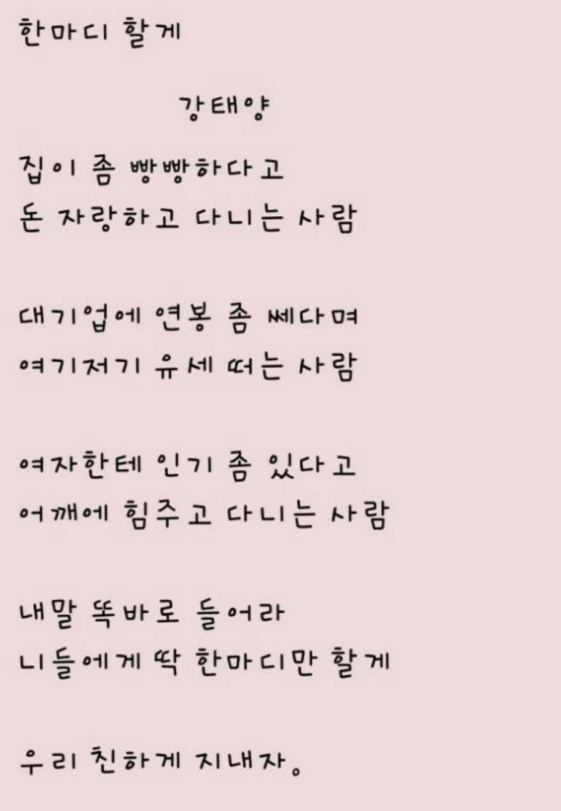 한마디 할게
강태양
집이 좀 빵빵하다고
돈 자랑하고 다니는 사람
대기업에 연봉 좀 쎄다며
여기저기 유세 떠는 사람
여자한테 인기 좀 있다고
어깨에 힘주고 다니는 사람
내말 똑바로 들어라
니들에게 딱 한마디만 할게
우리 친하게 지내자。